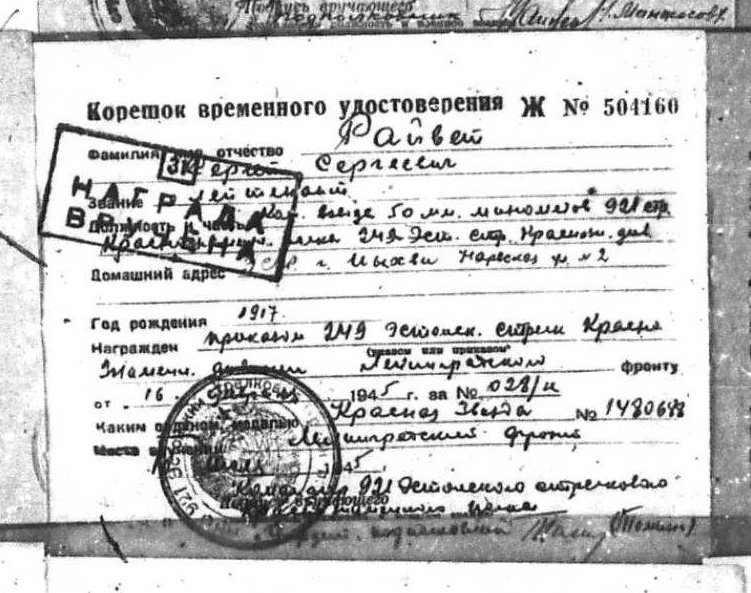 Подпись вручающего
подполковник
Корешок временного удостоверения Ж № 504160
Райвет
Фамилия, имя, отчество Сергей Сергеевич
НАГРАДА
ВРУЧЕНА
Звание лейтенант
Должность и часть Ком. взвода 50 мм. минометов 921 стр.
Краснознамен. полка 249 Эст. стр. Краснозн. див
Домашний адрес г. Иыхви Нарвская № 2
Год рождения 1917
Награжден приказом 249 Эстонск. стрелк Красно
(указом или приказом)
Знамен. дивизии Ленинградского фронту
от 16 февраля 1945 г. за № 028/н
Каким орденом, медалью Красная Звезда № 1480688
Место вручения Ленинградский фронт
1945
Командир 921 Эстонского стрелкового
вручающего
Краснознаменного полка
подполковник
921 ЭСТОНСКИЙ СТРЕЛКОВЫЙ